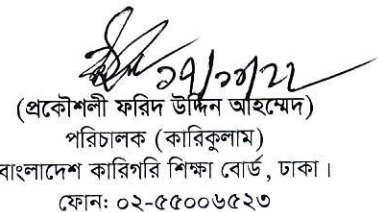 (প্রকৌশলী ফরিদ উদ্দিন আহম্মেদ)
পরিচালক (কারিকুলাম)
বাংলাদেশ কারিগরি শিক্ষা বোর্ড, ঢাকা।
ফোন: ০২-৫৫০০৬৫২৩